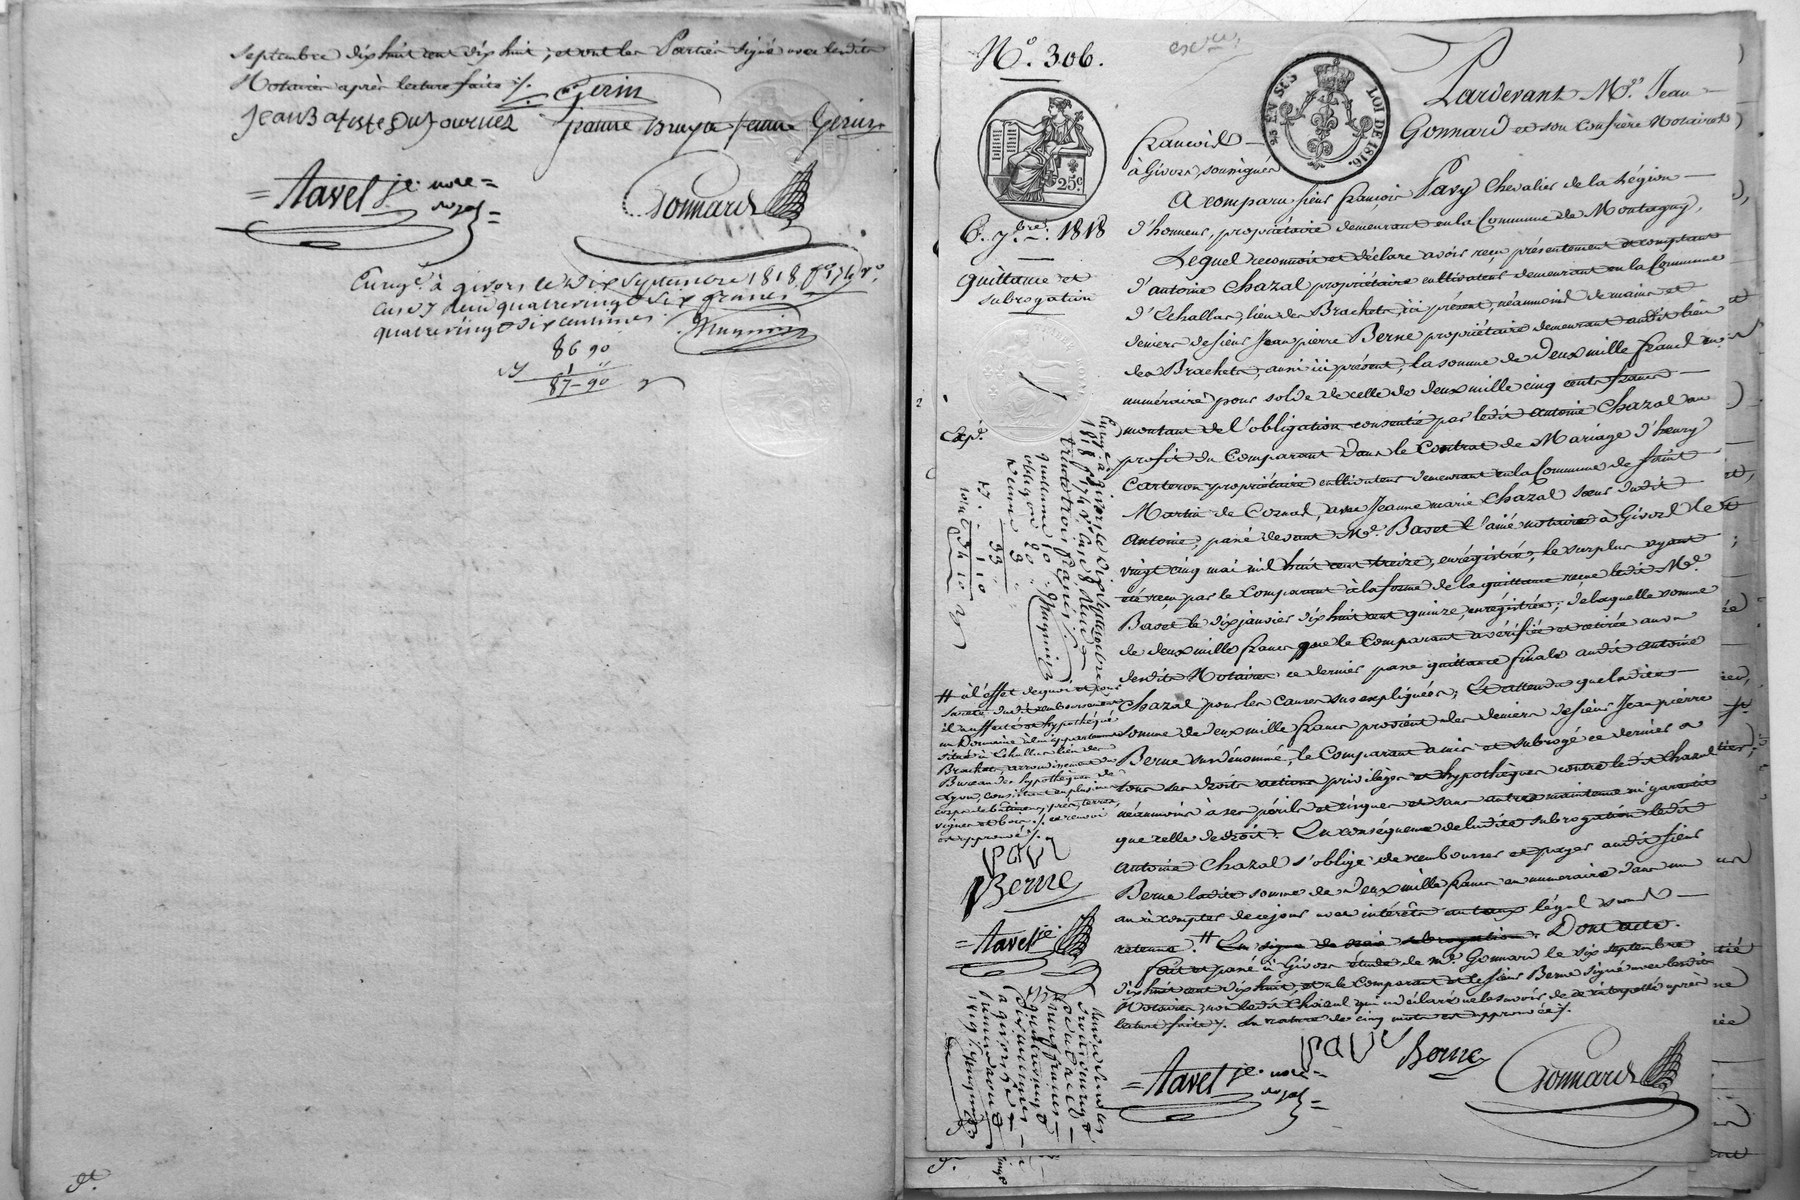 Septembre dix huit cent dix huit, et ont les Parties signé avec lesdits
Notaires après lecture faite ./.
Gerin
Jean Batiste Dufournel Jeanne Bruyas femme Gerin
= Tavel je. nore =
Gonnard
Enregé. à givors le dix septembre 1818, fo. 174 vo.
case 7 reçu quatrevingt six francs
quatrevingt dix centimes.
Mugnier
86 90
87-90
No. 306.
25 EN SUS
LOI DE 1816.
25c.
6. 7bre. 1818
quittance et
subrogation
Expd.
Pardevant Me. Jean
François Gonnard et son Confrère Notaires
à Givors, soussignés
A comparu sieur françois Pavy Chevalier de la Légion
d'honneur, propriétaire demeurant en la Commune de Montagny,
Lequel reconnoit et déclare avoir reçu présentement et comptant
d'antoine Chazal propriétaire cultivateur demeurant en la Commune
d'Echallas, lieu des Brachets, ici présent, néanmoins des mains et
deniers de sieur Jean pierre Berne propriétaire demeurant audit lieu
des Brachets, aussi ici présent, la somme de Deux mille francs en
numéraire pour solde de celle de deux mille cinq cents francs
montant de l'obligation consentie par ledit antoine Chazal au
profit du Comparant dans le Contrat de Mariage d'henry
Carteron propriétaire cultivateur demeurant en la Commune de saint
Martin de Cornas, avec Jeanne marie Chazal soeur dudit
antoine, passé devant Me. Basset l'ainé notaire à Givors le
vingt cinq mai mil huit cent treize, enrégistré, le surplus ayant
été reçu par le Comparant à la forme de la quittance reçue ledit Me.
Basset le dix janvier dix huit cent quinze, enrégistrée; de laquelle somme
de deux mille francs que le Comparant a vérifiée et retirée au vu
desdits Notaires ce dernier passe quittance finale audit antoine
Chazal pour les causes sus expliquées; Et attendu que ladite
somme de deux mille francs provient des deniers de sieur Jean pierre
Berne susnommé, le Comparant a mis et subrogé ce dernier à
tous ses droits actions privilèges et hypothèques contre ledit Chazal
néanmoins à ses périls et risques et sans autre maintenue ni garantie
que celle de droit. En conséquence de ladite subrogation ledit
antoine Chazal s'oblige de rembourser et payer audit sieur
Berne ladite somme de Deux mille francs en numéraire dans un
an à compter de ce jour avec intérêts au taux légal sans
retenue. # En signe de vraie subrogation. Dont acte.
Fait et passé à Givors étude de me. Gonnard le six septembre
dix huit cent dix huit, et le Comparant et le sieur Berne signé avec lesdits
Notaires, non ledit Chazal qui a déclaré ne le savoir de ce interpellé après
lecture faite ./. La rature de cinq mots est approuvée ./.
pavy Berne
= Tavel je. nore =
Gonnard
# à l'effet de quoi et pour
sureté dudit remboursement
il a affecté et hypothéqué
un Domaine à lui appartenant
situé à Echallas lieu des
Brachets, arrondissement du
Bureau des hypothèques de
Lyon, consistant en plusieurs
corps de bâtimens, prés, terres,
vignes et bois ./. et renvoi
est approuvé ./.
pavy
Berne
= Tavel je.
Enregé. à givors le dix septembre
1818 fo. 174 vo. case 8 reçu
trente trois francs
quittance 10
obligaon 20
33
Mugnier
34 10